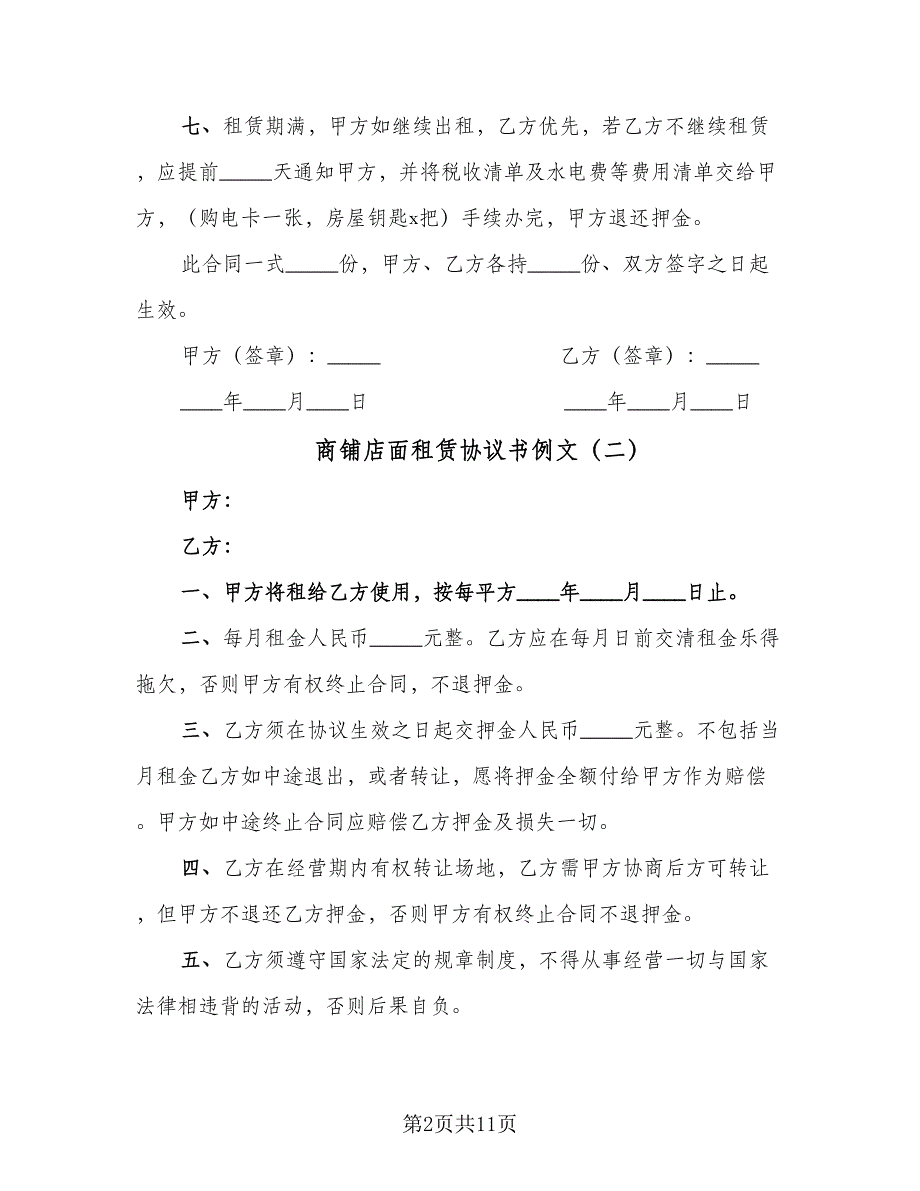 七、租赁期满，甲方如继续出租，乙方优先，若乙方不继续租赁
，应提前_____天通知甲方，并将税收清单及水电费等费用清单交给甲
方，（购电卡一张，房屋钥匙x把）手续办完，甲方退还押金。
此合同一式_____份，甲方、乙方各持_____份、双方签字之日起
生效。
甲方（签章）：_____ 乙方（签章）：_____
____年____月____日 ____年____月____日
商铺店面租赁协议书例文（二）
甲方：
乙方：
一、甲方将租给乙方使用，按每平方____年____月____日止。
二、每月租金人民币_____元整。乙方应在每月日前交清租金乐得
拖欠，否则甲方有权终止合同，不退押金。
三、乙方须在协议生效之日起交押金人民币_____元整。不包括当
月租金乙方如中途退出，或者转让，愿将押金全额付给甲方作为赔偿
。甲方如中途终止合同应赔偿乙方押金及损失一切。
四、乙方在经营期内有权转让场地，乙方需甲方协商后方可转让
，但甲方不退还乙方押金，否则甲方有权终止合同不退押金。
五、乙方须遵守国家法定的规章制度，不得从事经营一切与国家
法律相违背的活动，否则后果自负。
第2页共11页